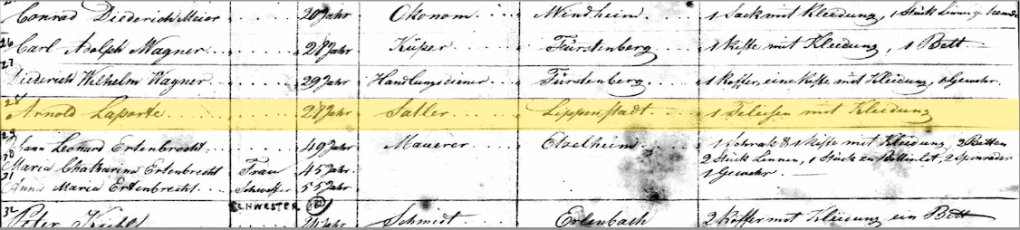 Conrad Diederich Meier 20 Jahr Ökonom Windheim 1 Sack mit Kleidung, 1 Stück Linnen
26 Carl Adolph Wagner 28 Jahr Küper Fürstenberg 1 Kiste mit Kleidung, 1 Bett
27 Diederich Wilhelm Wagner 29 Jahr Handlungsdiener Fürstenberg 1 Koffer, eine Kiste mit Kleidung, 1 Gewehr.
28 Arnold Laporte 28 Jahr Satler Lippenstadt 1 Feleisen mit Kleidung
29 Leonard Ertenbrecht 49 Jahr Mauerer Etzelheim 1 Schrak & 1 Kiste mit Kleidung, 2 Betten
30 Maria Chatharina Ertenbrecht Frau 45 Jahr 2 Stück Linnen, 1 Stück zu
31 Anna Maria Ertenbrecht Schwester 55 Jahr 1 Gewehr.
SCHWESTER
32 Peter 24 Jahr Schmidt Erlenbach 2 Koffer mit Kleidung ein Bett